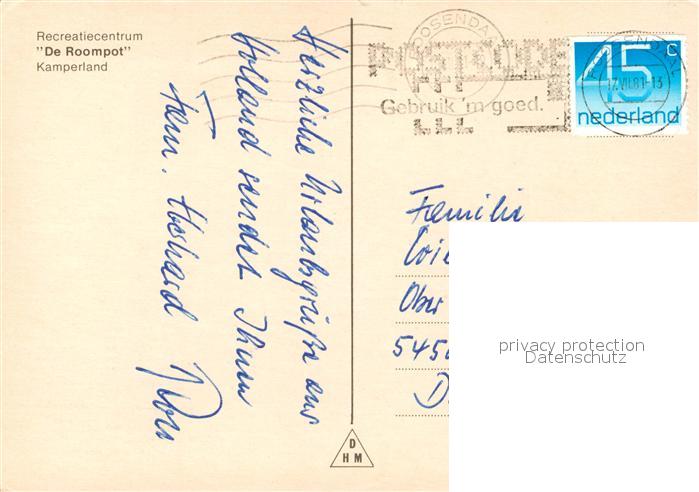 Recreatiecentrum
"De Roompot"
Kamperland
Herzliche Urlaubsgrüße aus
Holland sendet Ihnen
Fam.
ROOSENDAAL
POSTCODE
Gebruik 'm goed.
45 c
nederland
17.VII.81-13
Familie
Ober
545
D
privacy protection
Datenschutz
D
H M